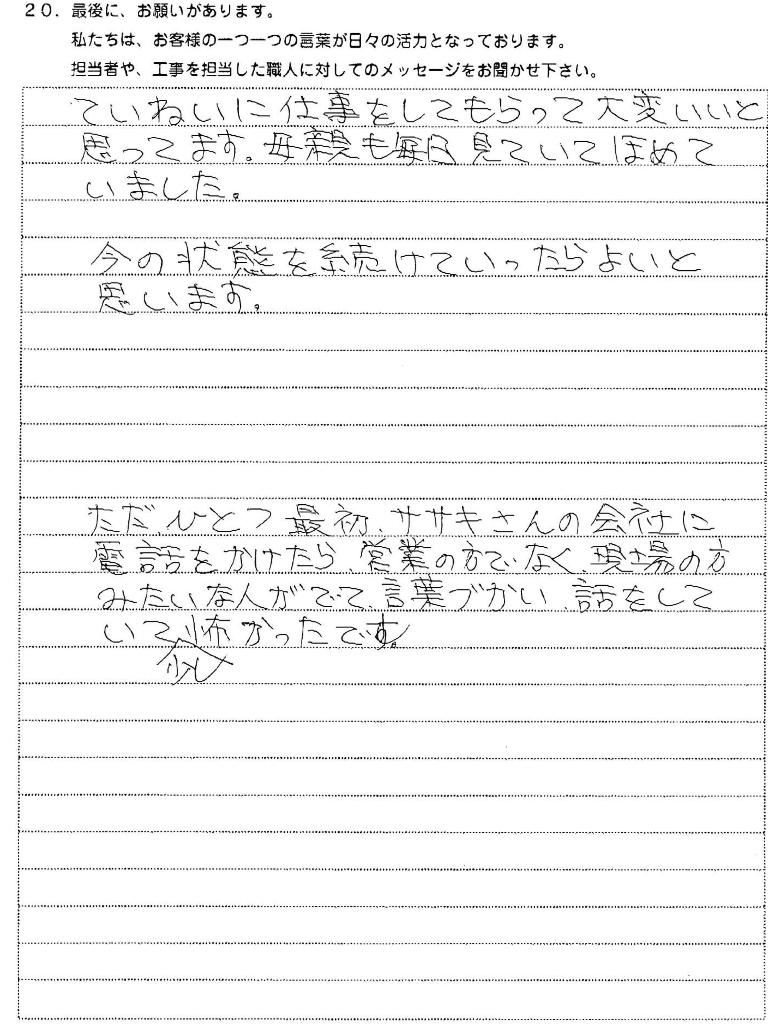 20. 最後に、お願いがあります。
私たちは、お客様の一つ一つの言葉が日々の活力となっております。
担当者や、工事を担当した職人に対してのメッセージをお聞かせ下さい。
ていねいに仕事をしてもらって大変いいと
思ってます。母親も毎日見ていてほめて
いました。
今の状態を続けていったらよいと
思います。
ただ、ひとつ最初、ササキさんの会社に
電話をかけたら、営業の方でなく、現場の方
みたいな人がでて、言葉づかい、話をして
いて怖かったです。
少し